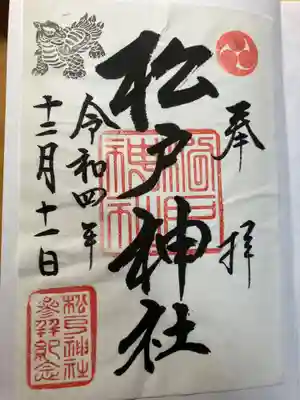 奉拝
松戸神社
令和四年
十二月十一日
松戸神社
参拝紀念